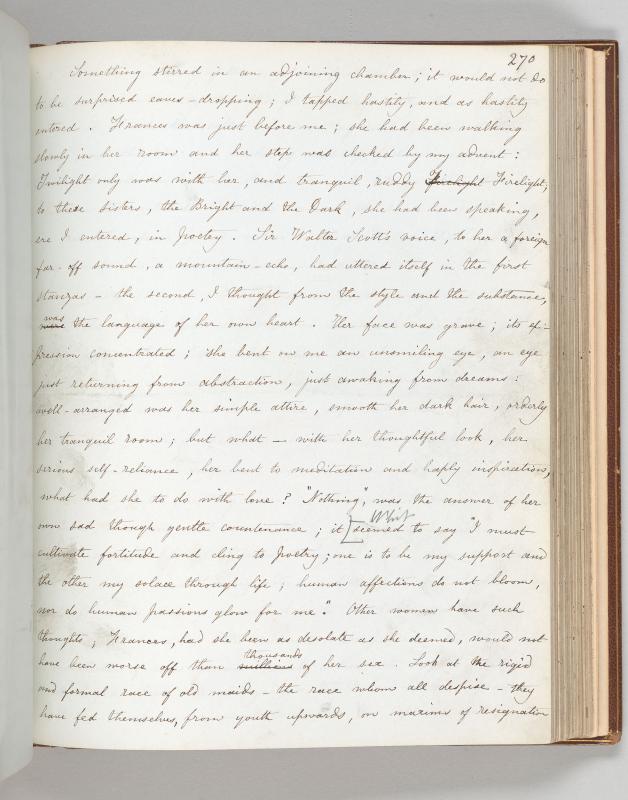 270
Something stirred in an adjoining chamber; it would not do
to be surprised eaves-dropping; I tapped hastily, and as hastily
entered. Frances was just before me; she had been walking
slowly in her room and her step was checked by my advent:
Twilight only was with her, and tranquil, ruddy Firelight Firelight;
to these Sisters, the Bright and the Dark, she had been speaking,
ere I entered, in Poetry. Sir Walter Scott's voice, to her a foreign
far-off sound, a mountain-echo, had uttered itself in the first
stanzas - the second, I thought from the style and the substance,
was
were the language of her own heart. Her face was grave; its ex-
pression concentrated; she bent on me an unsmiling eye, an eye
just returning from abstraction, just awaking from dreams:
well-arranged was her simple attire, smooth her dark hair, orderly
her tranquil room; but what — with her thoughtful look, her
serious self-reliance, her bent to meditation and haply inspiration,
what had she to do with love? "Nothing", was the answer of her
own sad though gentle countenance; it [seemed to say "I must
cultivate fortitude and cling to Poetry; one is to be my support and
the other my solace through life; human affections do not bloom,
nor do human passions glow for me." Other women have such
thoughts; Frances, had she been as desolate as she deemed, would not
thousands
have been worse off than millions of her sex. Look at the rigid
and formal race of old maids - the race whom all despise - they
have fed themselves, from youth upwards, on maxims of resignation